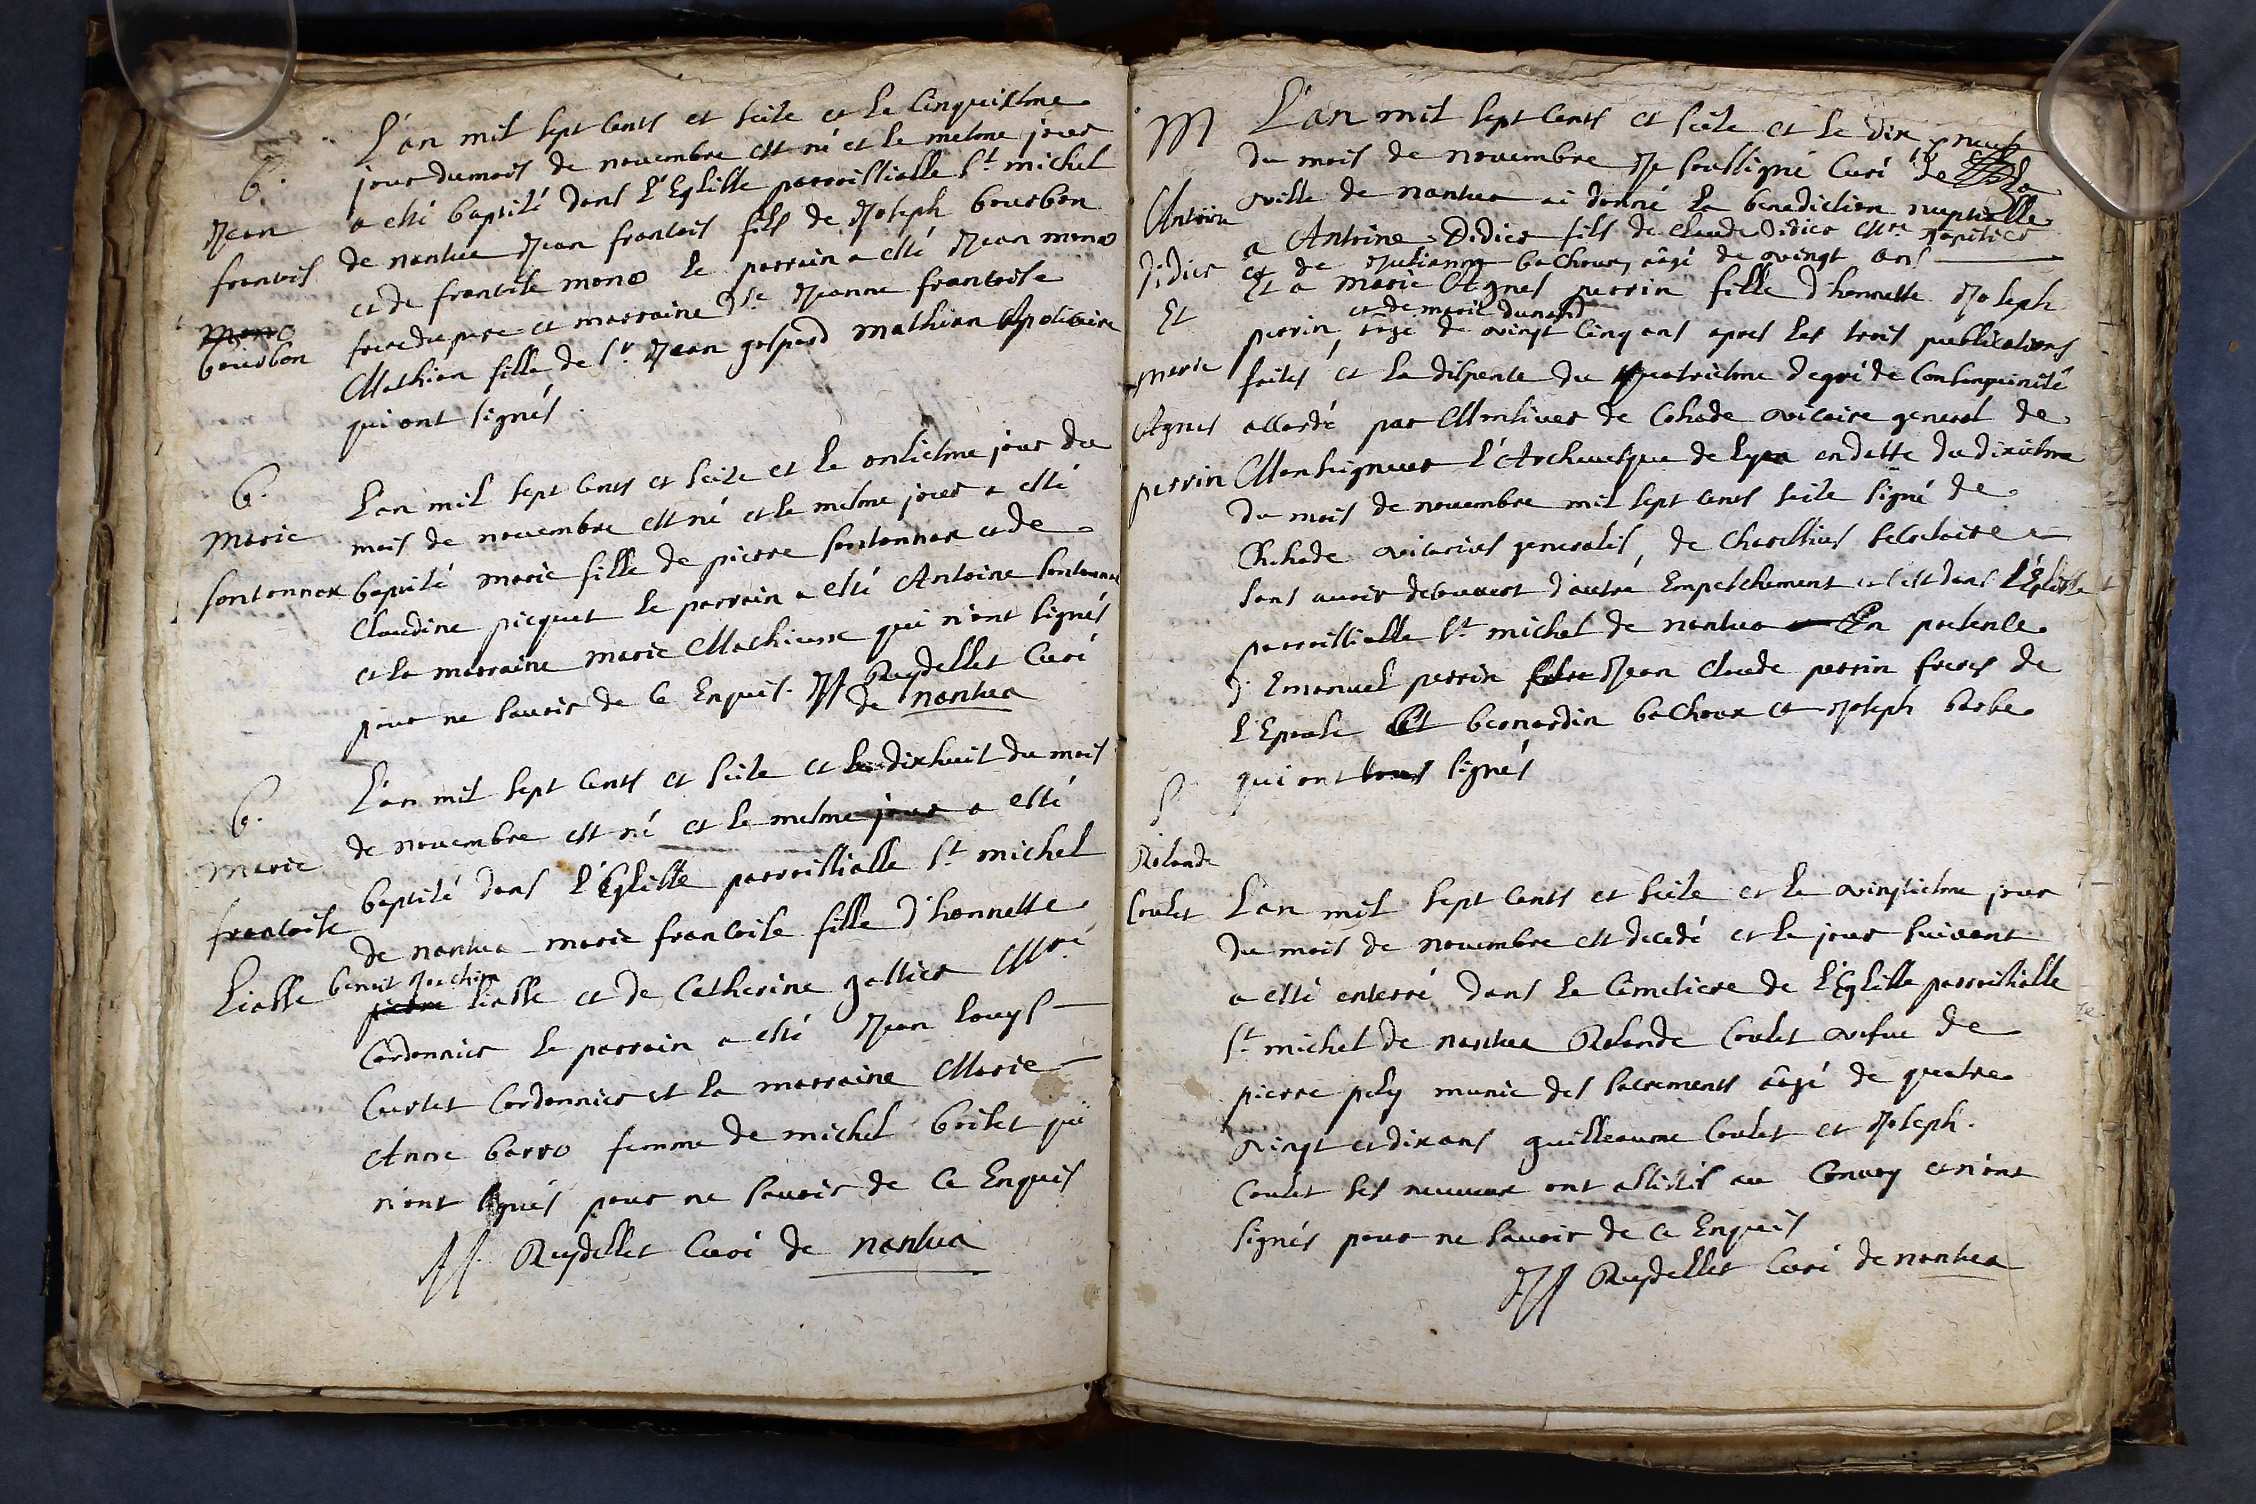 L'an mil sept cents et seize et le cinquiesme
jour du mois de novembre est né et le mesme jour
a esté baptisé dans l'Eglisse parroissialle St michel
de nantua Jean francois fils de Joseph bourbon
et de francoise mono le parrain a esté Jean mono
frere du pere et marraine dlle Jeanne francoise
Mathieu fille de Sr Jean gaspard mathieu Apoticaire
qui ont signés
b.
Jean
francois
mono
bourbon
L'an mil sept cents et seize et le onziesme jour du
mois de novembre est né et le mesme jour a esté
baptisé marie fille de pierre sontonnax et de
Claudine picquet le parrain a esté Antoine sontonnax
et la marraine marie Mathieusse qui n'ont signés
pour ne savoir de ce Enquis. JJ Ruydellet Curé
de nantua
b.
marie
sontonnax
L'an mil sept cents et seize et le dixhuit du mois
de novembre est né et le mesme jour a esté
baptisé dans l'Eglisse parroissialle St michel
de nantua marie francoise fille d'honnette
benoit Joachim
pierre liasse et de Catherine gallier Mre
Cordonnier le parrain a esté Jean louys
Curtet Cordonnier et la marraine Marie
Anne barro femme de michel boilet qui
n'ont signés pour ne savoir de ce Enquis
JJ. Ruydellet Curé de nantua
b.
marie
francoise
liasse
L'an mil sept cents et seize et le dix neuf
du mois de novembre Je soussigné Curé de la
ville de nantua ai donné la benediction nuptialle
a Antoine Didier fils de Claude Didier Mre
et de Julianne bachoux, âgé de vingt ans
Et a marie Agnes perrin fille d'honnette Joseph
et de marie dunand
perrin, âgé de vingt cinq ans apres les trois publications
faites et la dispense du quatriesme degré de Consanguinité
accordé par Monsieur de Cohade vicaire general de
Monseigneur l'Archevesque de lyon en datte du dixiesme
du mois de novembre mil sept cents seize signé de
Chohade vicarius generalis, de Secretaire
sans avoir decouvert d'autre Empeschement et c'est dans l'Eglisse
parroissialle St michel de nantua En presence
d'Emanuel perrin Jean Claude perrin freres de
l'Epouse Et bernardin bachoux et Joseph barbe
qui ont tous signés
M
Antoine
Didier
Et
marie
Agnes
perrin
L'an mil sept cents et seize et le vingtiesme jour
du mois de novembre est decedé et le jour suivant
a esté enterré dans le Cimetiere de l'Eglisse parroissialle
St michel de nantua Rolande Coulet vefue de
pierre pely munie des sacrements âgé de quatre
vingt et dix ans guilleaume Coulet et Joseph
Coulet ses neuueux ont assistés au Convoy et n'ont
signés pour ne savoir de ce Enquis
JJ Ruydellet Curé de nantua
S
Rolande
Coulet